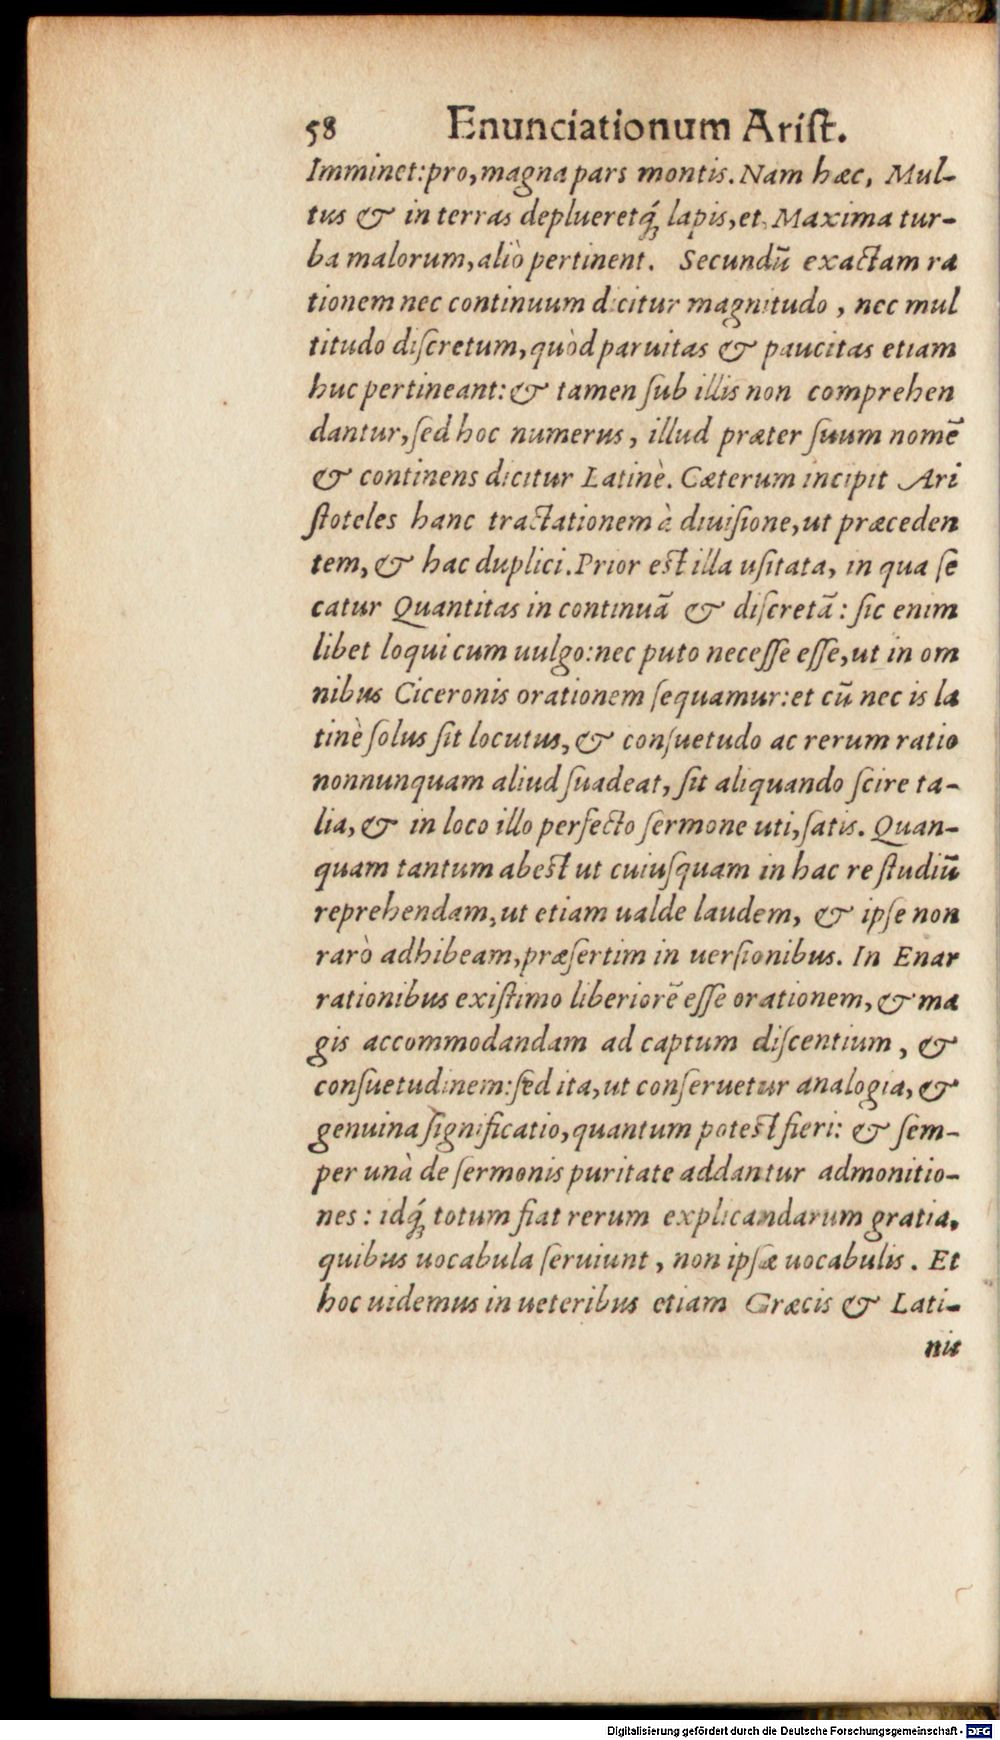 58 Enunciationum Arist.
Imminet: pro, magna pars montis. Nam hæc, Mul-
tus & in terras deplueretq́; lapis, et, Maxima tur-
ba malorum, aliò pertinent. Secundũ exactam ra
tionem nec continuum dicitur magnitudo, nec mul
titudo diſcretum, quòd paruitas & paucitas etiam
huc pertineant: & tamen ſub illis non comprehen
dantur, ſed hoc numerus, illud præter ſuum nomẽ
& continens dicitur Latinè. Cæterum incipit Ari
ſtoteles hanc tractationem à diuiſione, ut præceden
tem, & hac duplici. Prior est illa uſitata, in qua ſe
catur Quantitas in continuã & diſcretã: ſic enim
libet loqui cum uulgo: nec puto neceſſe eſſe, ut in om
nibus Ciceronis orationem ſequamur: et cũ nec is la
tinè ſolus ſit locutus, & conſuetudo ac rerum ratio
nonnunquam aliud ſuadeat, ſit aliquando ſcire ta-
lia, & in loco illo perfecto ſermone uti, ſatis. Quan-
quam tantum abest ut cuiuſquam in hac re ſtudiũ
reprehendam, ut etiam ualde laudem, & ipſe non
rarò adhibeam, præſertim in uerſionibus. In Enar
rationibus exiſtimo liberiorẽ eſſe orationem, & ma
gis accommodandam ad captum diſcentium, &
conſuetudinem: ſed ita, ut conſeruetur analogia, &
genuina ſignificatio, quantum potest fieri: & ſem-
per unà de ſermonis puritate addantur admonitio-
nes: idq́; totum fiat rerum explicandarum gratia,
quibus uocabula ſeruiunt, non ipſæ uocabulis. Et
hoc uidemus in ueteribus etiam Græcis & Lati-
nis
Digitalisierung gefördert durch die Deutsche Forschungsgemeinschaft - DFG